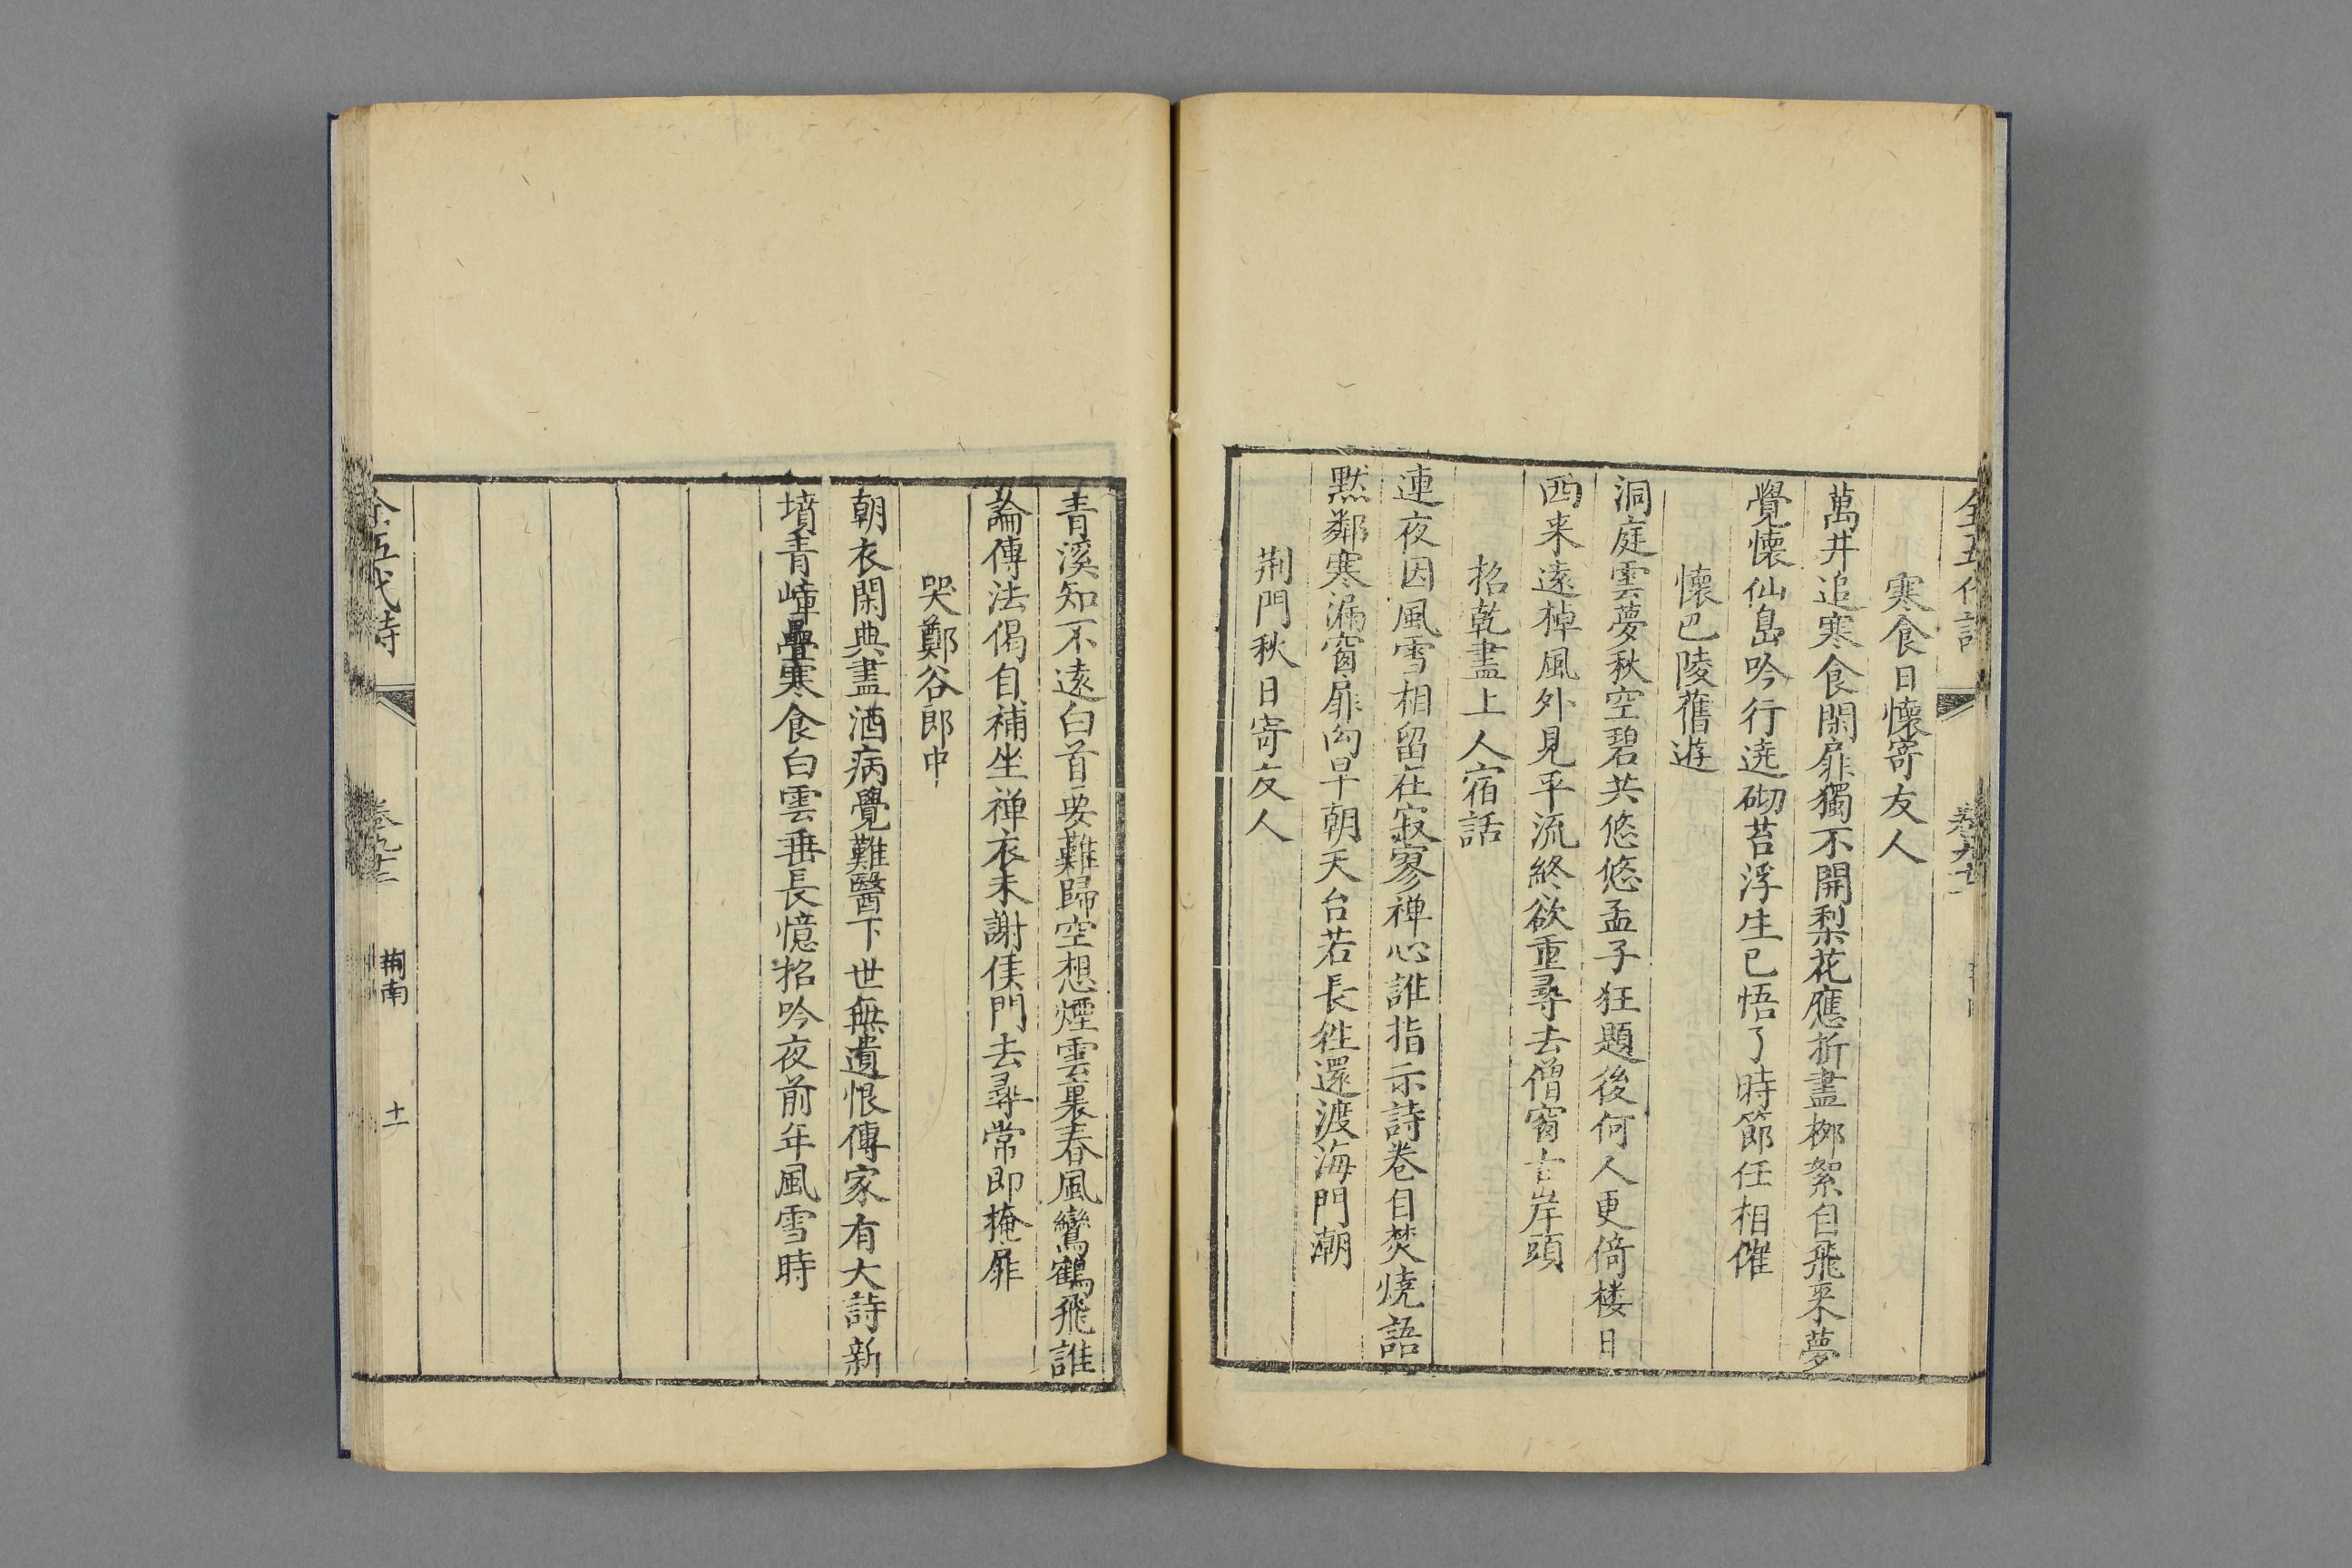 全五代詩
寒食日懷寄友人
萬井追寒食閑扉獨不開梨花應折盡桺絮自飛来夢
覺懷仙島吟行遶砌苔浮生已悟了時節任相催
懷巴陵舊遊
洞庭雲夢秋空碧共悠悠孟子狂題後何人更倚楼日
西来遠棹風外見平流終欲重尋去僧窗古岸頭
招乾晝上人宿話
連夜因風雪相留在寂寥禅心誰指示詩卷自焚焼語
黙鄰寒漏窗扉向早朝天台若長徃還渡海門潮
荆門秋日寄友人
青溪知不遠白首要難歸空想煙雲裏春風鸞鶴飛誰
論傳法偈自補坐禅衣未謝侯門去尋常即掩扉
哭鄭谷郎中
朝衣閑典盡酒病覺難醫下世無遺恨傳家有大詩新
墳青嶂疊寒食白雲垂長憶招吟夜前年風雪時
五代詩
荆南
十一